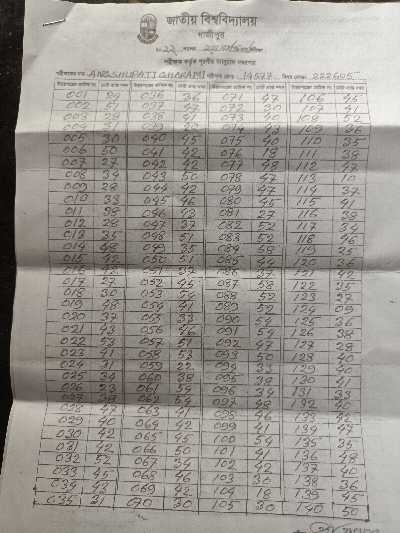 জাতীয় বিশ্ববিদ্যালয়
গাজীপুর
পরীক্ষক কর্তৃক পূরণীয় নম্বরপত্র
পরীক্ষকের নাম ANGSHUPATI GHARAMI পরীক্ষক কোড 19577 বিষয় কোড 222605
001 036 36 071 47 106 45
002 51 037 072 30 107 41
003 28 038 41 073 40 108 52
004 039 074 43 109 36
005 30 040 45 075 40 110 35
006 50 041 42 076 18 111 38
007 27 042 42 077 48 112 47
008 34 043 50 078 47 113 10
009 28 044 42 079 47 114 37
010 33 045 46 080 45 115 41
011 38 046 43 081 27 116 38
012 28 047 37 082 52 117 34
013 35 048 51 083 52 118 46
014 48 049 35 084 58 119
015 42 050 51 085 44 120 36
016 42 051 37 086 37 121 42
017 27 052 45 087 58 122 35
018 30 053 54 088 52 123 27
019 48 054 41 089 52 124 09
020 37 055 33 090 54 125 36
021 43 056 46 091 54 126 38
022 53 057 51 092 47 127 28
023 41 058 53 093 50 128 40
024 31 059 22 094 33 129 40
025 34 060 38 095 38 130 41
026 23 061 35 096 34 131 33
027 062 54 097 32 132
028 47 063 41 098 46 133 42
029 40 064 42 099 41 134 47
030 42 065 45 100 54 135 35
031 42 066 50 101 41 136 48
032 52 067 34 102 42 137 40
033 45 068 46 103 30 138 36
034 43 069 42 104 18 139 45
035 31 070 30 105 30 140 50